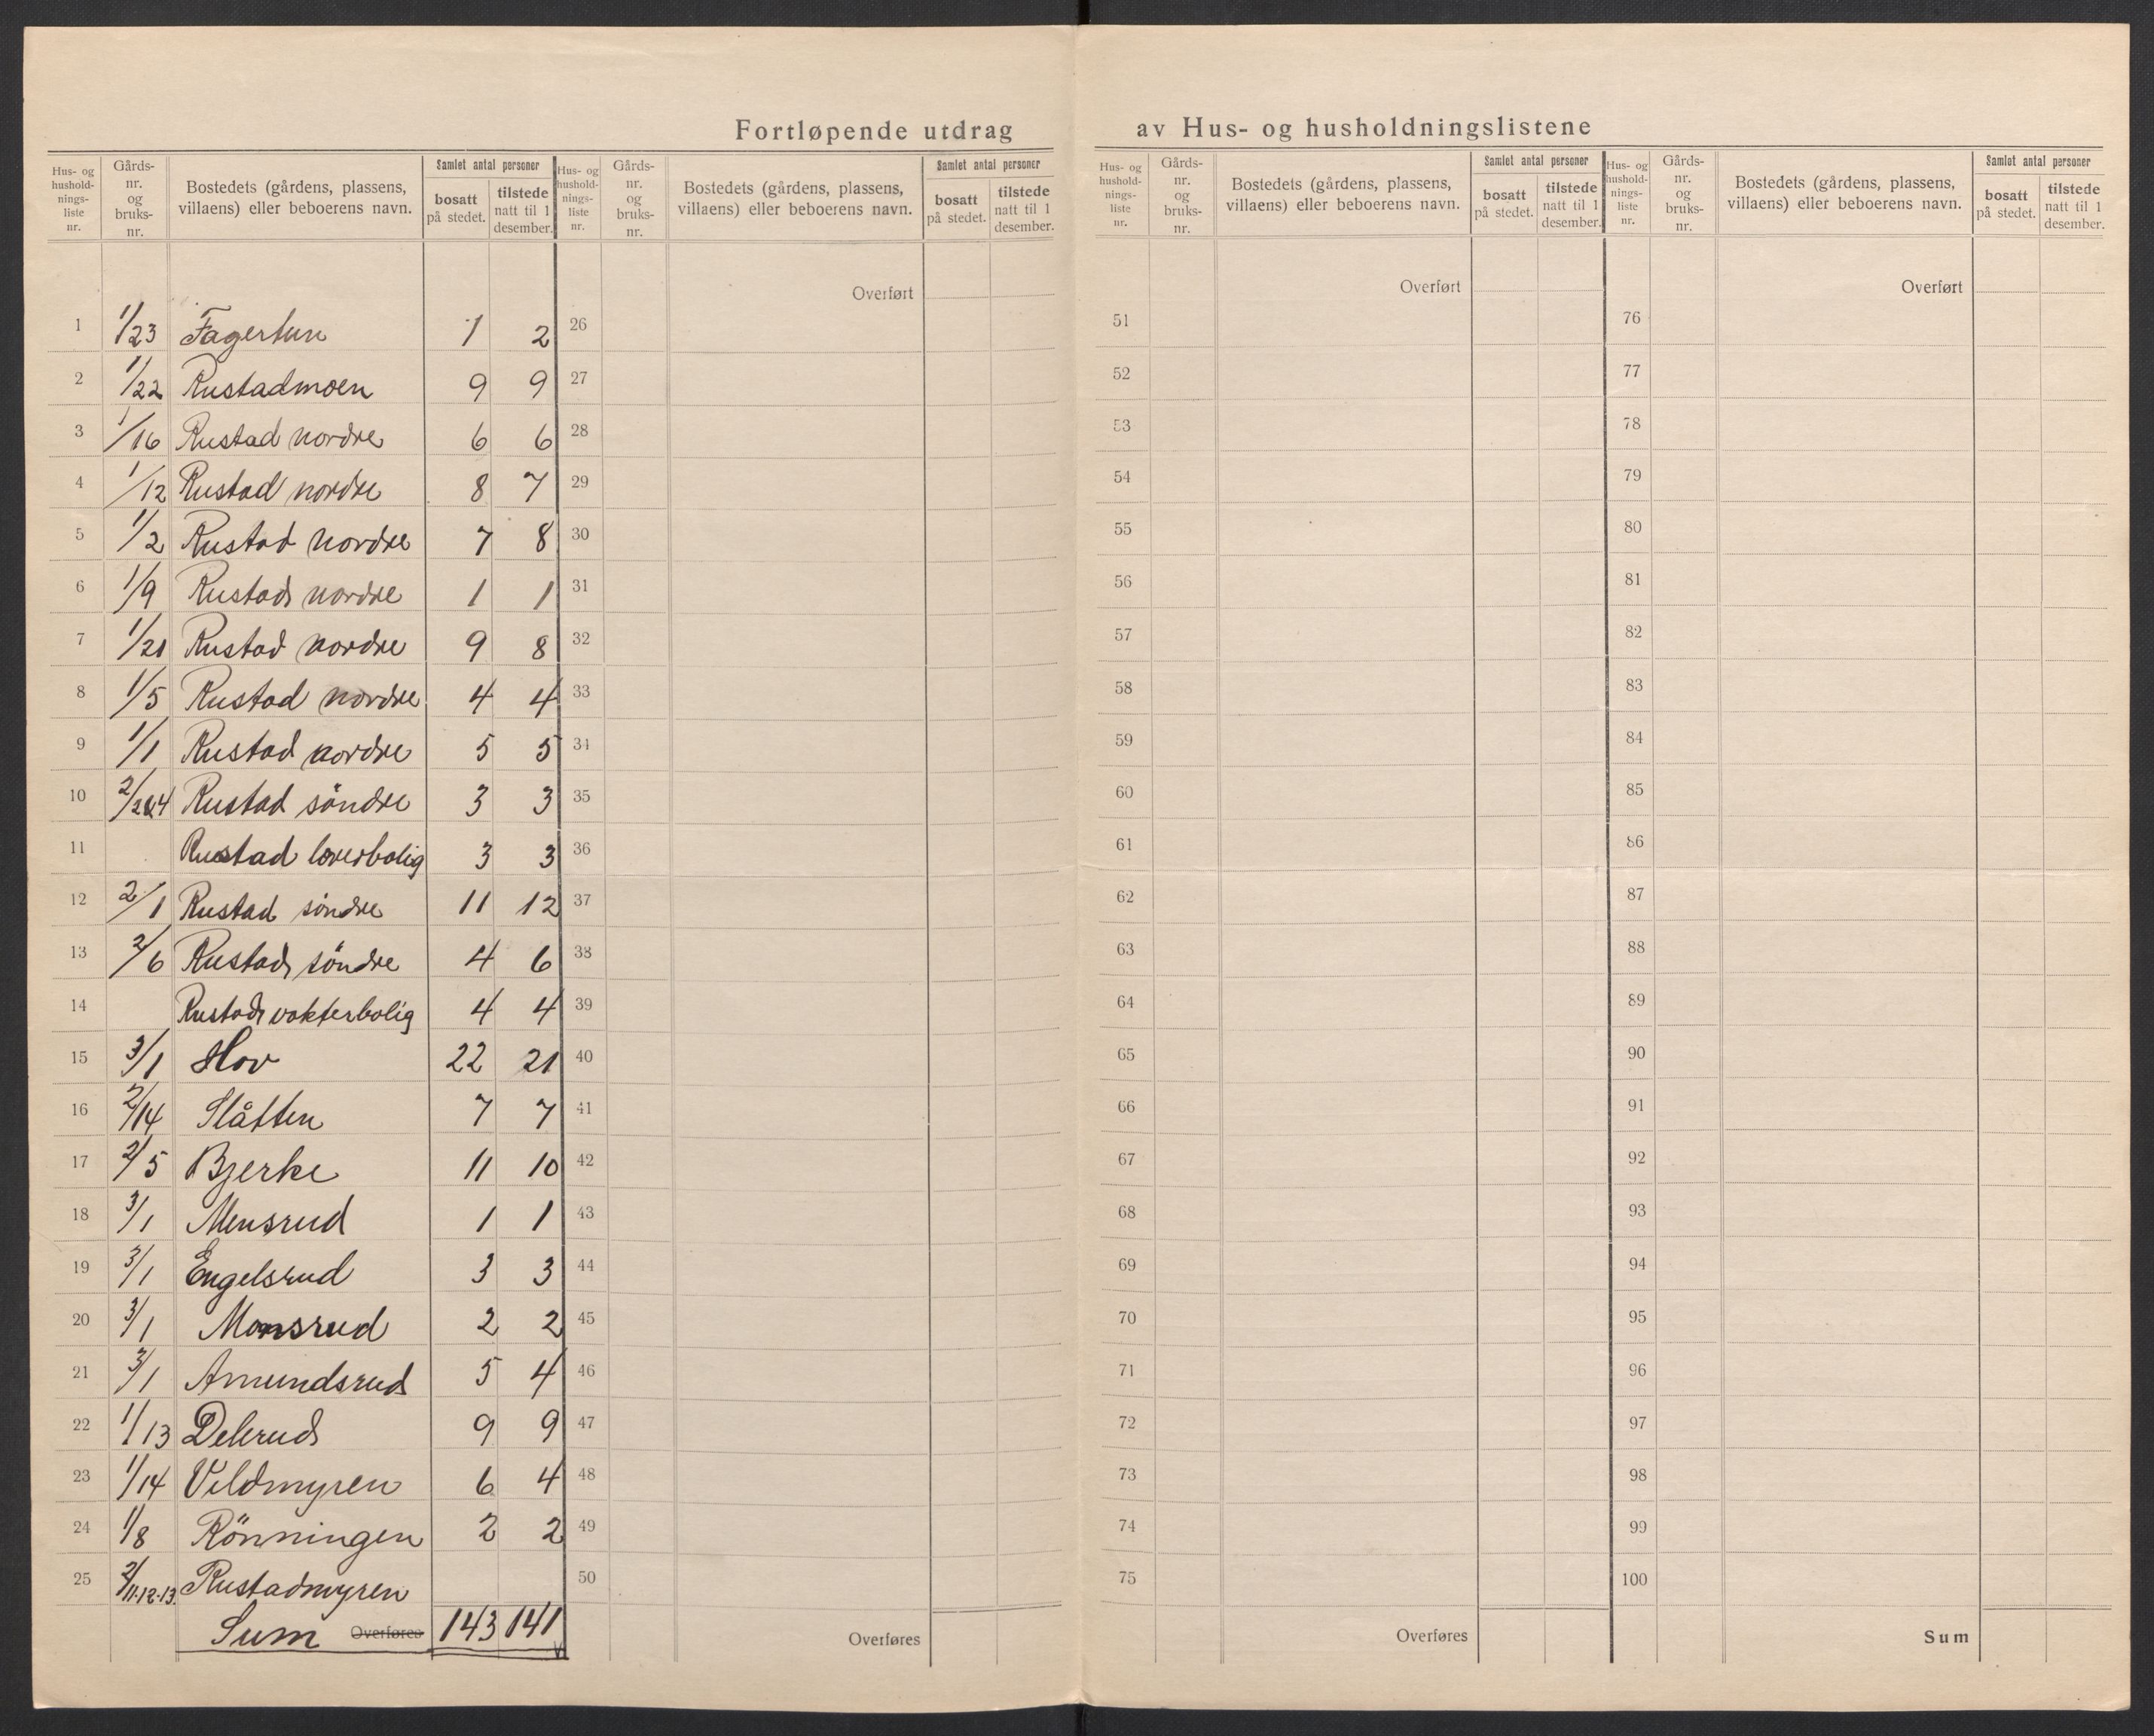 Fortløpende utdrag av Hus- og husholdningslistene
Hus- og hushold-nings-liste nr. Gårds-nr. og bruks-nr. Bostedets (gårdens, plassens, villaens) eller beboerens navn. Samlet antal personer bosatt på stedet. tilstede natt til 1 desember.
Hus- og hushold-nings-liste nr. Gårds-nr. og bruks-nr. Bostedets (gårdens, plassens, villaens) eller beboerens navn. Samlet antal personer bosatt på stedet. tilstede natt til 1 desember.
Hus- og hushold-nings-liste nr. Gårds-nr. og bruks-nr. Bostedets (gårdens, plassens, villaens) eller beboerens navn. Samlet antal personer bosatt på stedet. tilstede natt til 1 desember.
Hus- og hushold-nings-liste nr. Gårds-nr. og bruks-nr. Bostedets (gårdens, plassens, villaens) eller beboerens navn. Samlet antal personer bosatt på stedet. tilstede natt til 1 desember.
Overført Overført Overført
1 1/23 Fagertun 1 2 26 51 76
2 1/22 Rustadmoen 9 9 27 52 77
3 1/16 Rustad nordre 6 6 28 53 78
4 1/12 Rustad nordre 8 7 29 54 79
5 1/2 Rustad nordre 7 8 30 55 80
6 1/9 Rustad nordre 1 1 31 56 81
7 1/21 Rustad nordre 9 8 32 57 82
8 1/5 Rustad nordre 4 4 33 58 83
9 1/1 Rustad nordre 5 5 34 59 84
10 2/2&4 Rustad söndre 3 3 35 60 85
11 Rustad 3 3 36 61 86
12 2/1 Rustad söndre 11 12 37 62 87
13 2/6 Rustad söndre 4 6 38 63 88
14 Rustad vokterbolig 4 4 39 64 89
15 3/1 Hov 22 21 40 65 90
16 2/14 Slåtten 7 7 41 66 91
17 2/5 Bjerke 11 10 42 67 92
18 3/1 Mensrud 1 1 43 68 93
19 3/1 Engelsrud 3 3 44 69 94
20 3/1 Monsrud 2 2 45 70 95
21 3/1 Amundsrud 5 4 46 71 96
22 1/13 Delerud 9 9 47 72 97
23 1/14 Vildmyren 6 4 48 73 98
24 1/8 Rönningen 2 2 49 74 99
25 2/11-12-13. Rustadmyren 50 75 100
Sum Overføres 143 141 Overføres Overføres Sum